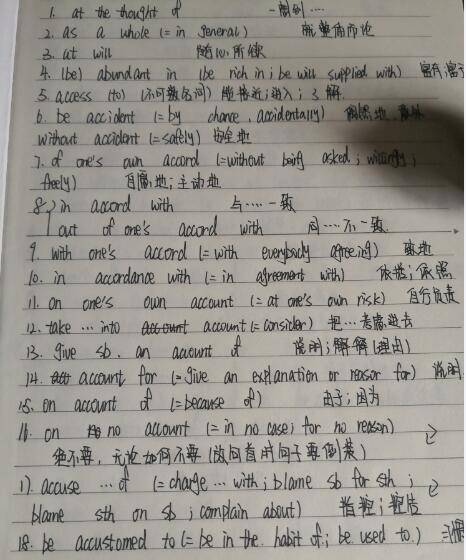 1. at the thought of 一想到……
2. as a whole (= in general) 就整体而论
3. at will 随心所欲
4. (be) abundant in (be rich in ; be will supplied with) 富有,富于
5. access (to) (不可数名词) 能接近;进入;了解
6. be accident (= by chance, accidentally) 偶然地,意外
without accident (= safely) 安全地
7. of one's own accord (= without being asked ; willingly ;
freely) 自愿地;主动地
8. in accord with 与……一致
out of one's accord with 同……不一致
9. with one's accord (= with everybody agreeing) 一致地
10. in accordance with (= in agreement with) 依照;依照
11. on one's own account (= at one's own risk) 自行负责
12. take … into account (= consider) 把…考虑进去
13. give sb. an account of 说明;解释(理由)
14. account for (= give an explanation or reason for) 说明
15. on account of (= because of) 由于;因为
16. on no account (= in no case; for no reason)
绝不要,无论如何不要(放句首时句子要倒装)
17. accuse … of (= charge … with ; blame sb for sth ;
blame sth on sb ; complain about) 指控;控告
18. be accustomed to (= be in the habit of ; be used to.) 习惯